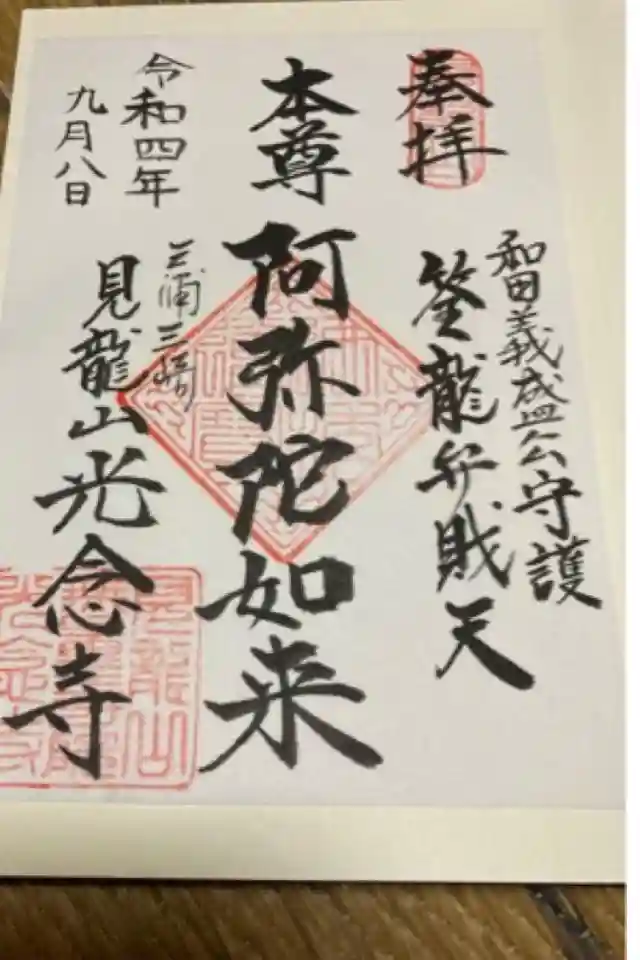 奉拝
和田義盛公守護
筌龍弁財天
本尊 阿弥陀如来
三浦三崎
見龍山光念寺
令和四年
九月八日
見龍山
光念寺